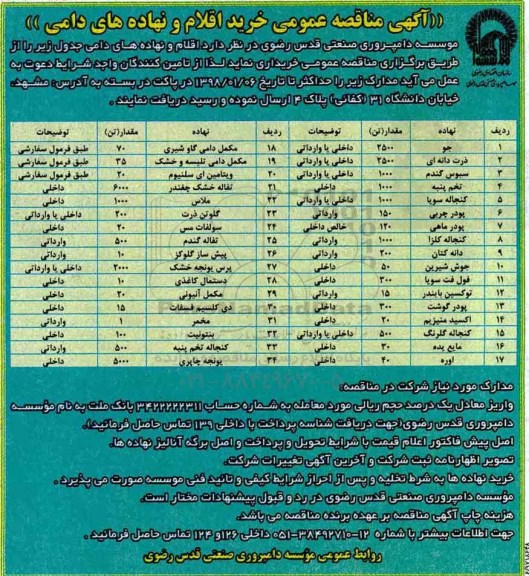 «آگهی مناقصه عمومی خرید اقلام و نهاده های دامی»
موسسه دامپروری صنعتی قدس رضوی در نظر دارد اقلام و نهاده های دامی جدول زیر را از
طریق برگزاری مناقصه عمومی خریداری نماید لذا از تامین کنندگان واجد شرایط دعوت به
عمل می آید مدارک زیر را حداکثر تا تاریخ ۱۳۹۸/۰۱/۰۶ در پاکت در بسته به آدرس: مشهد،
خیابان دانشگاه ۳۱ (کفائی) پلاک ۴ ارسال نموده و رسید دریافت نمایند.
ردیف نهاده مقدار(تن) توضیحات ردیف نهاده مقدار(تن) توضیحات
۱ جو ۲۵۰۰ داخلی یا وارداتی ۱۸ مکمل دامی گاو شیری ۷۰ طبق فرمول سفارشی
۲ ذرت دانه ای ۲۵۰۰ داخلی یا وارداتی ۱۹ مکمل دامی تلیسه و خشک ۳۵ طبق فرمول سفارشی
۳ سبوس گندم ۱۰۰۰ داخلی یا وارداتی ۲۰ ویتامین ای سلنیوم ۲۰ طبق فرمول سفارشی
۴ تخم پنبه ۱۰۰۰ داخلی ۲۱ تفاله خشک چغندر ۶۰۰۰ داخلی
۵ کنجاله سویا ۱۰۰۰ داخلی یا وارداتی ۲۲ ملاس ۱۰۰۰ داخلی
۶ پودر چربی ۱۵۰ وارداتی ۲۳ گلوتن ذرت ۲۰۰ داخلی یا وارداتی
۷ پودر ماهی ۱۲۰ خالص داخلی ۲۴ سولفات مس ۲۰ داخلی
۸ کنجاله کلزا ۱۰۰۰ وارداتی ۲۵ تفاله گندم ۵۰۰ وارداتی
۹ دانه کتان ۲۰۰ وارداتی ۲۶ پیش ساز گلوکز ۱۰ وارداتی
۱۰ جوش شیرین ۵۰ داخلی ۲۷ پرس یونجه خشک ۲۰۰۰ داخلی یا وارداتی
۱۱ فول فت سویا ۳۰۰ داخلی ۲۸ دستمال کاغذی ۱۰ داخلی
۱۲ توکسین بایندر ۱۵ وارداتی ۲۹ مکمل آنیونی ۲۰ داخلی
۱۳ پودر گوشت ۳۰۰ داخلی ۳۰ دی کلسیم فسفات ۱۵ داخلی
۱۴ اکسید منیزیم ۲۰ داخلی ۳۱ مخمر ۱ وارداتی
۱۵ کنجاله گلرنگ ۵۰۰ داخلی یا وارداتی ۳۲ بنتونیت ۱۰۰ داخلی
۱۶ مایع پده ۳۰ داخلی ۳۳ کنجاله تخم پنبه ۵۰۰ وارداتی
۱۷ اوره ۴۰ داخلی ۳۴ یونجه چاپری ۵۰۰۰ داخلی
مدارک مورد نیاز شرکت در مناقصه:
واریز معادل یک درصد حجم ریالی مورد معامله به شماره حساب ۳۴۲۲۲۲۲۳۱۱ بانک ملت به نام مؤسسه
دامپروری قدس رضوی(جهت دریافت شناسه پرداخت با داخلی ۱۳۹ تماس حاصل فرمائید).
اصل پیش فاکتور اعلام قیمت با شرایط تحویل و پرداخت و اصل برگه آنالیز نهاده ها.
تصویر اظهارنامه ثبت شرکت و آخرین آگهی تغییرات شرکت.
خرید نهاده ها به شرط تخلیه و پس از احراز شرایط کیفی و تائید فنی موسسه صورت می پذیرد.
مؤسسه دامپروری صنعتی قدس رضوی در رد و قبول پیشنهادات مختار است.
هزینه چاپ آگهی مناقصه بر عهده برنده مناقصه می باشد.
جهت اطلاعات بیشتر با شماره ۱۲-۳۸۴۹۲۷۱۰-۰۵۱ داخلی ۱۲۶ و ۱۲۴ تماس حاصل فرمائید.
روابط عمومی مؤسسه دامپروری صنعتی قدس رضوی